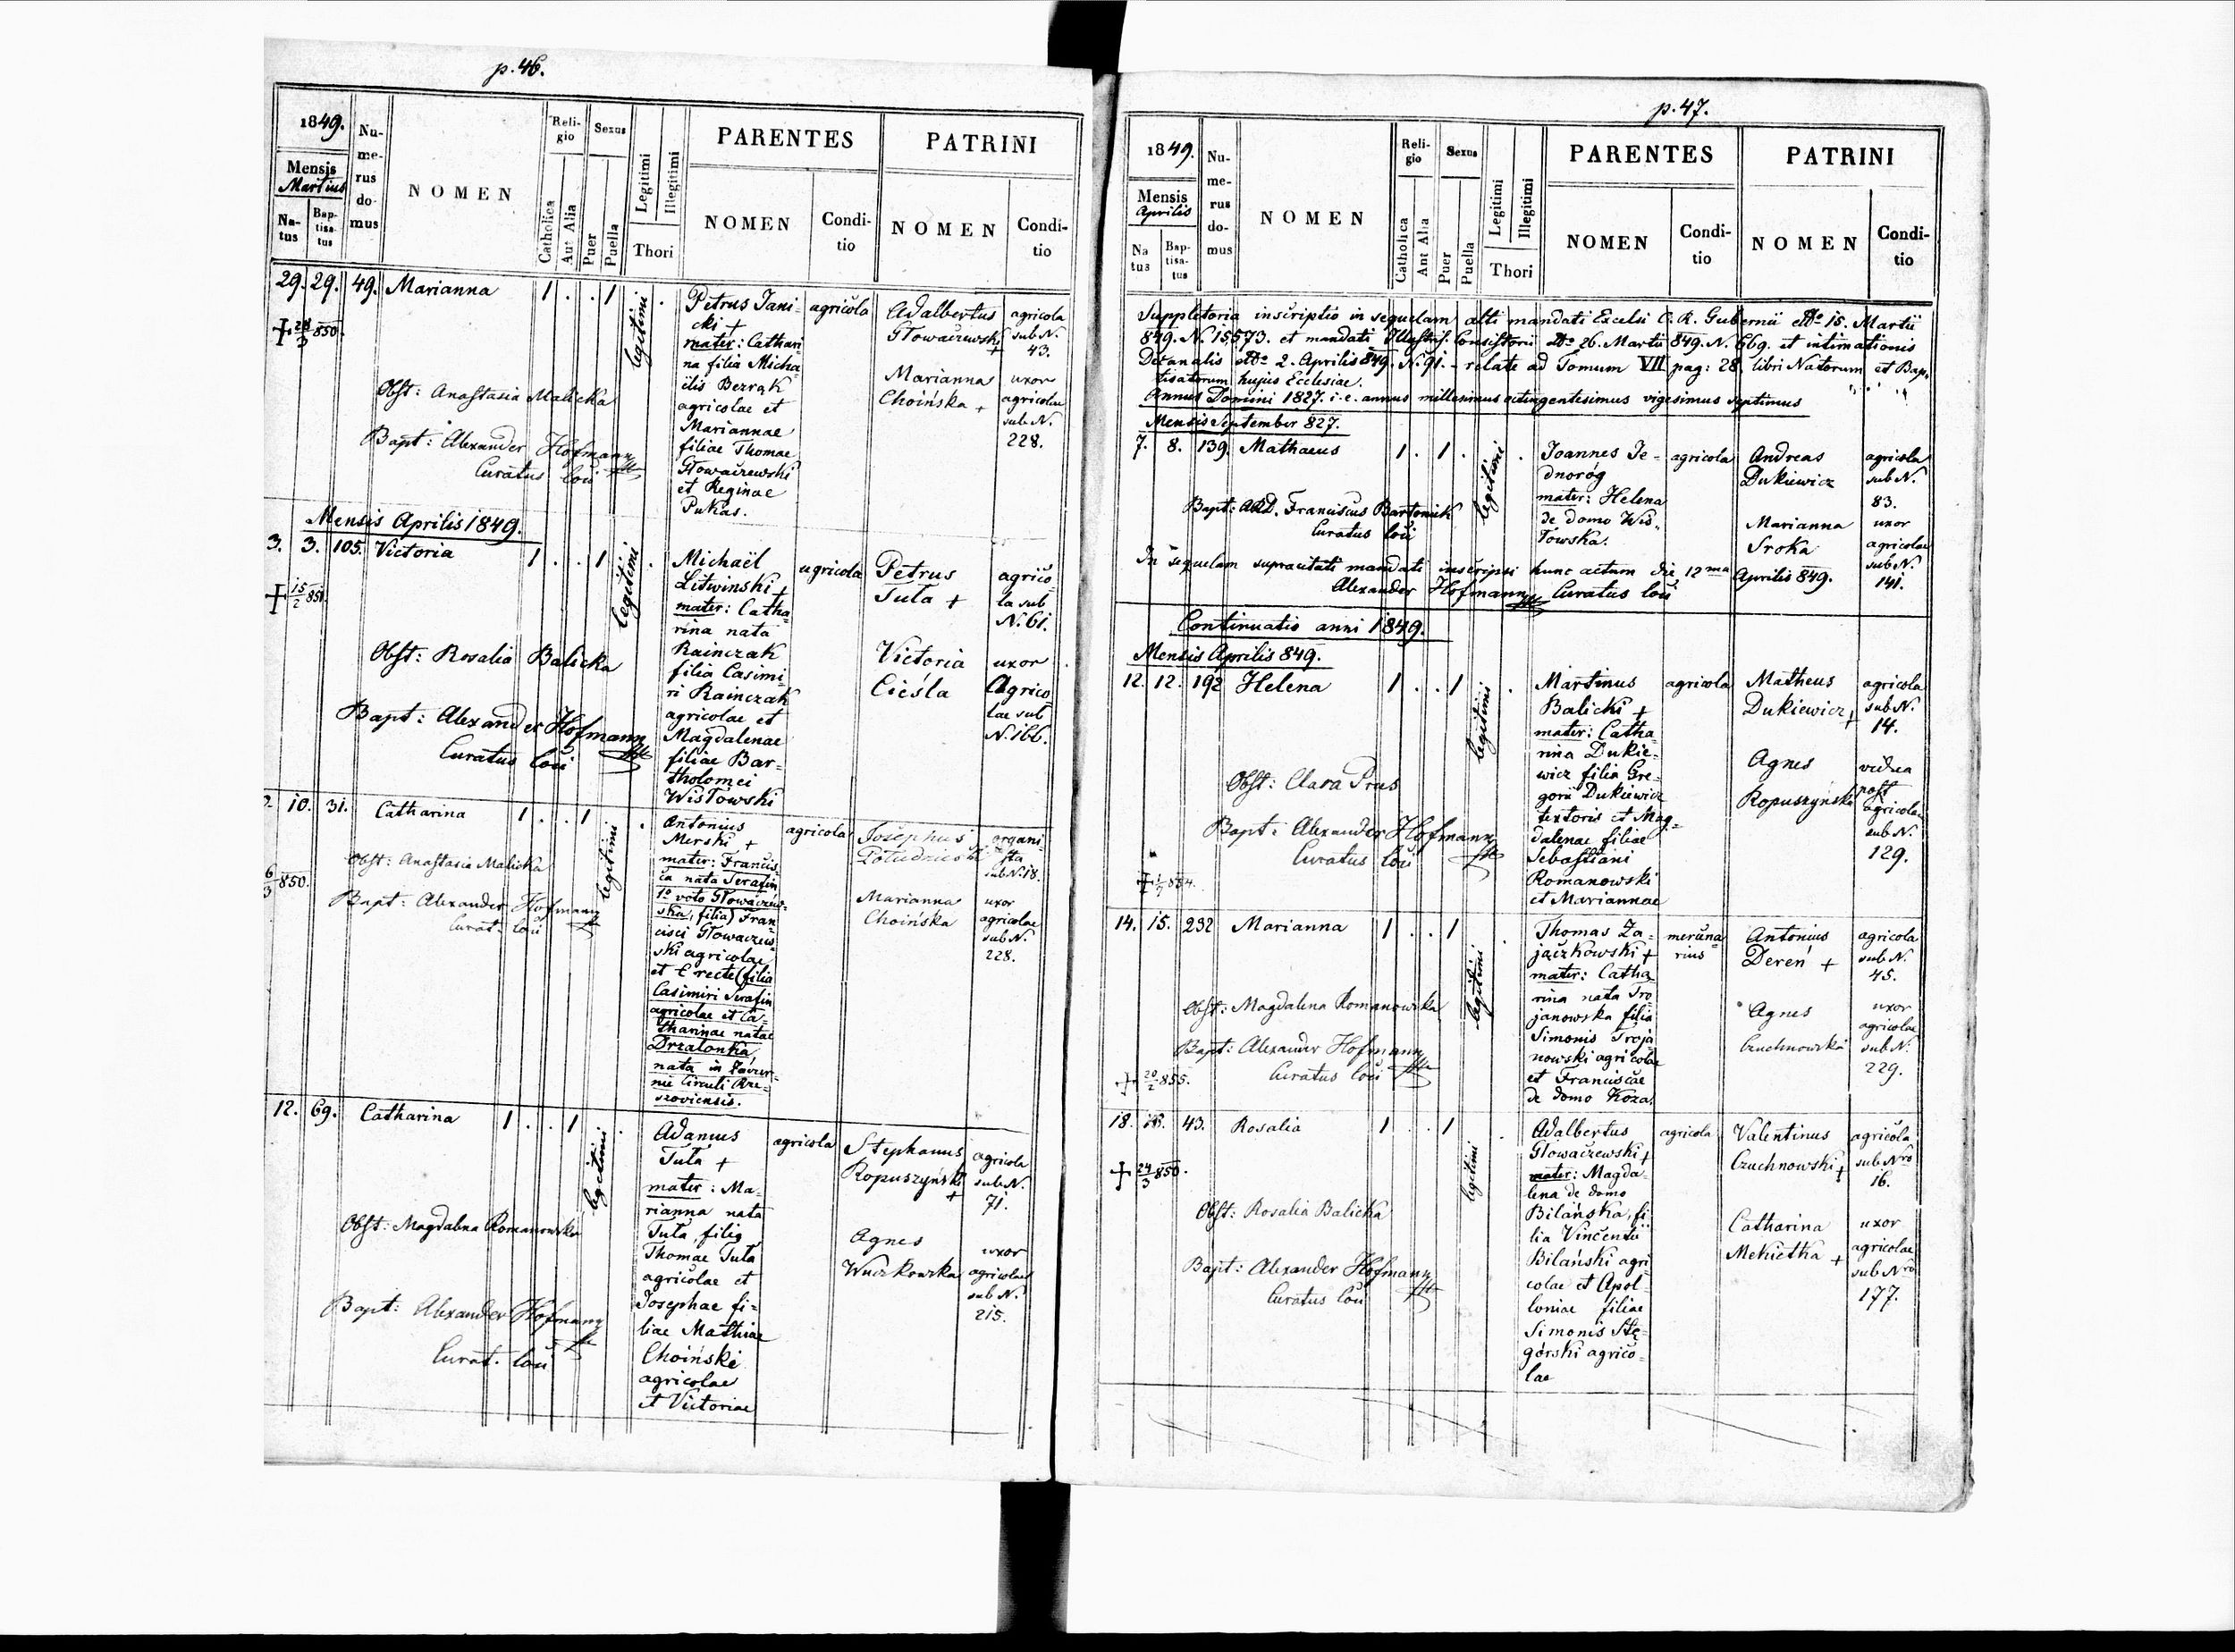 p. 46.
1849.
Mensis
Martius
Na-
tus
Bap-
tisa-
tus
Nu-
me-
rus
do-
mus
NOMEN
Reli-
gio
Catholica
Aut Alia
Sexus
Puer
Puella
Legitimi
Illegitimi
Thori
PARENTES
NOMEN
Condi-
tio
PATRINI
NOMEN
Condi-
tio
29. 29. 49. Marianna 1 . . 1 legitimi .
+ 28/3 850.
Obst: Anastasia Malicka
Bapt: Alexander Hofmann
Curatus loci
Petrus Jani-
cki +
mater: Cathari
na filia Micha-
ëlis Bezrąk
agricolae et
Mariannae
filiae Thomae
Głowaczewski
et Reginae
Pukas.
agricola
Adalbertus
Głowaczewski
+
Marianna
Choińska +
agricola
sub N.
43.
uxor
agricolae
sub N.
228.
Mensis Aprilis 1849.
3. 3. 105. Victoria 1 . . 1 legitimi .
+ 15/2 851.
Obst: Rosalia Balicka
Bapt: Alexander Hofmann
Curatus loci
Michaël
Litwinski +
mater: Catha-
rina nata
Rainczak
filia Casimi-
ri Rainczak
agricolae et
Magdalenae
filiae Bar-
tholomei
Wisłowski
agricola
Petrus
Tuła +
Victoria
Cieśla
agrico-
la sub
N. 61.
uxor
Agrico
lae sub
N. 166.
10. 31. Catharina 1 . . 1 legitimi .
6/3 850.
Obst: Anastasia Malicka
Bapt: Alexander Hofmann
Curat. loci
Antonius
Merski +
mater: Francis-
ca nata Serafin
1o voto Głowaczew-
ska, filia) Fran-
cisci Głowaczew-
ski agricolae
et C recte (filia
Casimiri Serafin
agricolae et Ca-
tharinae natae
Drzalonka,
nata in
nie Circuli Rze-
szoviensis.
agricola
Josephus
Marianna
Choińska
organi-
sta
sub N. 18.
uxor
agricolae
sub N.
228.
12. 69. Catharina 1 . . 1 legitimi .
Obst: Magdalena Romanowska
Bapt: Alexander Hofmann
Curat. loci
Adamus
Tuła +
mater: Ma-
rianna nata
Tuła, filia
Thomae Tuła
agricolae et
Josephae fi-
liae Mathiae
Choiński
agricolae
et Victoriae
agricola
Stephanus
Ropuszyński
+
Agnes
Wuczkowska
agricola
sub N.
71.
uxor
agricolae
sub N.
215.
p. 47.
1849.
Mensis
Aprilis
Na
tus
Bap-
tisa-
tus
Nu-
me-
rus
do-
mus
NOMEN
Reli-
gio
Catholica
Aut Alia
Sexus
Puer
Puella
Legitimi
Illegitimi
Thori
PARENTES
NOMEN
Condi-
tio
PATRINI
NOMEN
Condi-
tio
Suppletoria inscriptio in sequelam alti mandati Excelsi C. R. Gubernii ddo 15. Martii
849. N. 15,573. et mandati Illustris. Consistorii ddo 26. Martii 849. N. 669. et intimationis
Decanalis ddo 2. Aprilis 849. N. 91. - relate ad Tomum VII pag: 28. libri Natorum et Bap-
tisatorum hujus Ecclesiae.
Annus Domini 1827. i. e. annus millesimus octingentesimus vigesimus septimus
Mensis September 827.
7. 8. 139. Mathaeus 1 . 1 . legitimi .
Bapt: ARD. Franciscus Bartonik
Curatus loci
Joannes Je-
dnoróg
mater: Helena
de domo Wis-
łowska.
agricola
Andreas
Dukiewicz
Marianna
Sroka
agricola
sub N.
83.
uxor
agricolae
sub N.
141.
In sequelam supracitati mandati inscripsi hunc actum die 12ma Aprilis 849.
Alexander Hofmann Curatus loci
Continuatio anni 1849.
Mensis Aprilis 849.
12. 12. 192 Helena 1 . . 1 legitimi .
Obst: Clara Prus
Bapt: Alexander Hofmann
Curatus loci
854.
Martinus
Balicki +
mater: Catha-
rina Dukie-
wicz filia Gre-
gorii Dukiewicz
textoris et Mag-
dalenae filiae
Sebastiani
Romanowski
et Mariannae
agricola
Matheus
Dukiewicz +
Agnes
Ropuszyńska
agricola
sub N.
14.
vidua
post
agricolam
sub N.
129.
14. 15. 232 Marianna 1 . . 1 legitimi .
Obst: Magdalena Romanowska
Bapt: Alexander Hofmann
Curatus loci
+ 20/2 855.
Thomas Za-
jączkowski +
mater: Catha-
rina nata Tro
janowska filia
Simonis Troja
nowski agricolae
et Franciscae
de domo Koza.
mercena-
rius
Antonius
Dereń +
Agnes
Czuchnowska
agricola
sub N.
45.
uxor
agricolae
sub N.
229.
18. 43. Rosalia 1 . . 1 legitimi .
+ 24/3 850.
Obst: Rosalia Balicka
Bapt: Alexander Hofmann
Curatus loci
Adalbertus
Głowaczewski +
mater: Magda-
lena de domo
Bilańska, fi-
lia Vincentii
Bilański agri-
colae et Apol-
loniae filiae
Simonis Stę-
górski agrico-
lae
agricola
Valentinus
Czuchnowski +
Catharina
Mekietka +
agricola
sub Nro
16.
uxor
agricolae
sub Nro
177.